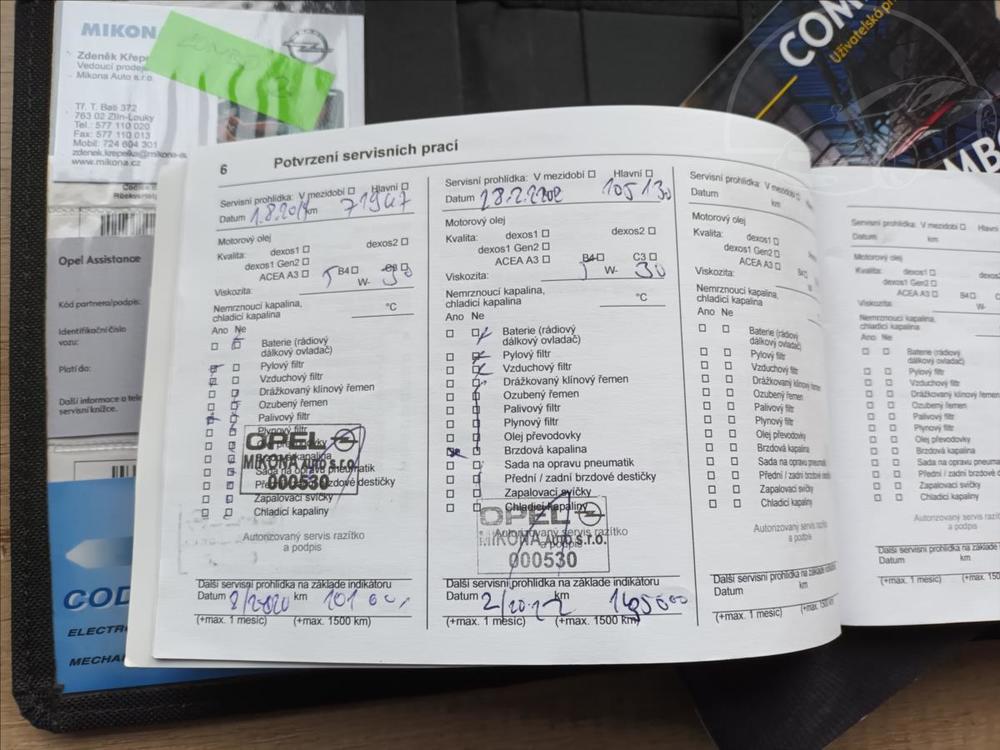 MIKONA
Zdeněk Křep
Vedoucí prodeje
Mikona Auto s.r.o.
COMBO
Tř. T. Bati 372
763 02 Zlín-Louky
Tel.: 577 110 020
Fax: 577 110 013
Mobil: 724 604 301
zdenek.krepelka@mikona-a
www.mikona.cz
Opel Assistance
Kód partnera/podpis:
Identifikační číslo
vozu:
Platí do:
Další informace o tele
servisní knížce.
COD
ELECTR
MECHA
COM
Uživatelská př
MBO
6 Potvrzení servisních prací
Servisní prohlídka: V mezidobí □ Hlavní □
Datum 1.8.2019 km 71947
Motorový olej
Kvalita: dexos1 □ dexos2 □
dexos1 Gen2 □
ACEA A3 □ B4 □ C3 □
Viskozita: 5 W- 30
Nemrznoucí kapalina,
chladicí kapalina °C
Ano Ne
Baterie (rádiový
dálkový ovladač)
Pylový filtr
Vzduchový filtr
Drážkovaný klínový řemen
Ozubený řemen
Palivový filtr
Plynový filtr
Brzdová kapalina
Sada na opravu pneumatik
Přední / zadní brzdové destičky
Zapalovací svíčky
Chladicí kapaliny
OPEL
MIKONA AUTO s.r.o.
000530
Autorizovaný servis razítko
a podpis
Další servisní prohlídka na základě indikátoru
Datum 8/2020 km 101 000
(+max. 1 měsíc) (+max. 1500 km)
Servisní prohlídka: V mezidobí □ Hlavní □
Datum 28.2.2202 105130
Motorový olej
Kvalita: dexos1 □ dexos2 □
dexos1 Gen2 □
ACEA A3 □ B4 □ C3 □
Viskozita: 5 W- 30
Nemrznoucí kapalina,
chladicí kapalina °C
Ano Ne
Baterie (rádiový
dálkový ovladač)
Pylový filtr
Vzduchový filtr
Drážkovaný klínový řemen
Ozubený řemen
Palivový filtr
Plynový filtr
Olej převodovky
Brzdová kapalina
Sada na opravu pneumatik
Přední / zadní brzdové destičky
Zapalovací svíčky
Chladicí kapaliny
OPEL
MIKONA AUTO s.r.o.
000530
Autorizovaný servis razítko
a podpis
Další servisní prohlídka na základě indikátoru
Datum km
(+max. 1 měsíc) (+max. 1500 km)
Servisní prohlídka: V mezidobí □
Datum km
Motorový olej
Kvalita: dexos1 □
dexos1 Gen2 □
ACEA A3 □ B4 □
Viskozita: W-
Nemrznoucí kapalina,
chladicí kapalina
Ano Ne
Baterie (rádiový
dálkový ovladač)
Pylový filtr
Vzduchový filtr
Drážkovaný klínový řemen
Ozubený řemen
Palivový filtr
Plynový filtr
Olej převodovky
Brzdová kapalina
Sada na opravu pneumatik
Přední / zadní brzdové
Zapalovací svíčky
Chladicí kapaliny
Autorizovaný servis razítko
a podpis
Další servisní prohlídka na základě
Datum km
(+max. 1 měsíc) (+max. 1500 km)
Servisní prohlídka: V mezidobí □ Hlavní
Datum km
Motorový olej
Kvalita: dexos1 □
dexos1 Gen2 □
ACEA A3 □ B4 □
Viskozita: W-
Nemrznoucí kapalina,
chladicí kapalina
Ano Ne
Baterie (rádiový
dálkový ovladač)
Pylový filtr
Vzduchový filtr
Drážkovaný klínový řemen
Ozubený řemen
Palivový filtr
Plynový filtr
Olej převodovky
Brzdová kapalina
Sada na opravu pneuma
Přední / zadní brzdové
Zapalovací svíčky
Chladicí kapaliny
Autorizovaný servis razít
a podpis
Další servisní prohlídka na základě
Datum km
(+max. 1 měsíc) (+max. 150